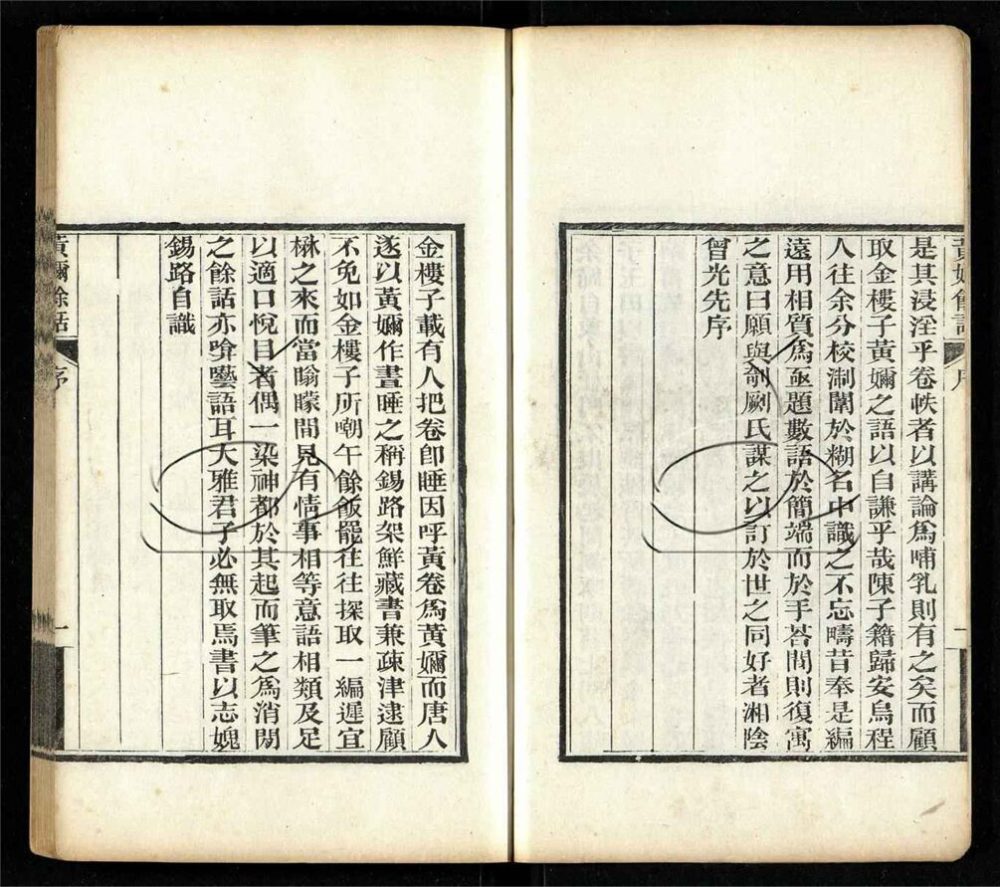 是其浸淫乎卷帙者以講論爲哺乳則有之矣而顧
取金樓子黃嬭之語以自謙乎哉陳子籍歸安烏程
人往余分校浙闈於糊名中識之不忘疇昔奉是編
遠用相質爲亟題數語於簡端而於手荅間則復寓
之意曰願與剞劂氏謀之以訂於世之同好者湘陰
曾光先序
金樓子載有人把卷卽睡因呼黃卷爲黃嬭而唐人
遂以黃嬭作晝睡之稱錫路架鮮藏書兼疎津逮顧
不免如金樓子所嘲午餘飯罷往往探取一編遲宜
楙之來而當㬻矇間見有情事相等意語相類及足
以適口悅目者偶一染神都於其起而筆之爲消閒
之餘話亦喰囈語耳大雅君子必無取焉書以志媿
錫路自識
黃嬭餘話
序
一